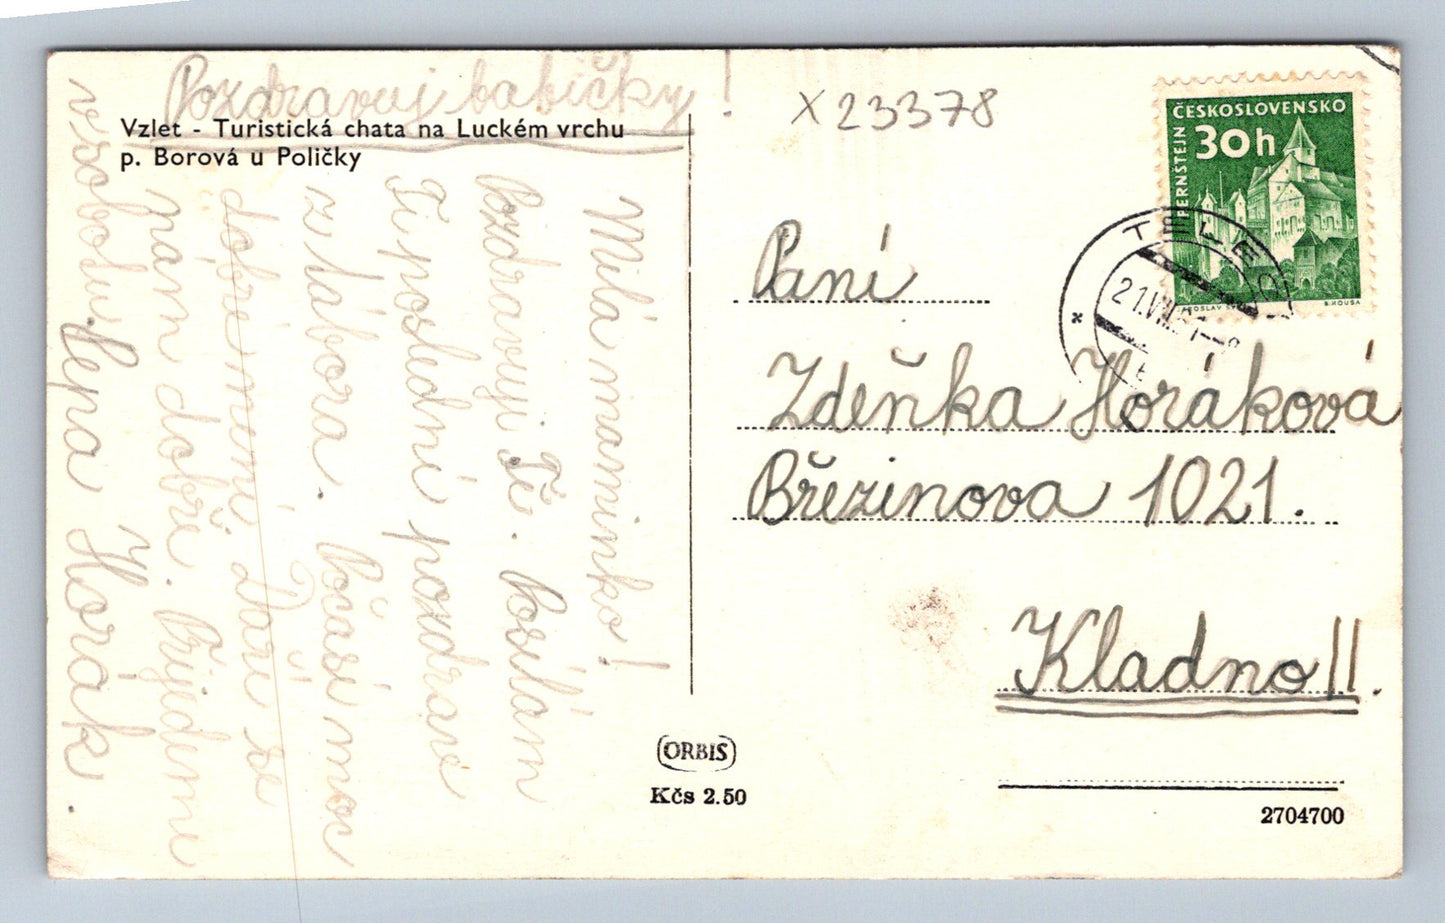 Pozdravuj babičky!
Vzlet - Turistická chata na Luckém vrchu
p. Borová u Poličky
Milá maminko!
Pozdravuji Tě. Posílám
Ti poslední pozdrav
z tábora. Počasí moc
dobré není. Daří se
nám dobře. Přijedeme
v sobotu. Pepa Horák.
X23378
ČESKOSLOVENSKO
30h
PERNŠTEJN
JAROSLAV
B. HOUSA
TELEČ
21.VII.
Paní
Zdeňka Horáková
Březinova 1021.
Kladno II.
ORBIS
Kčs 2.50
2704700